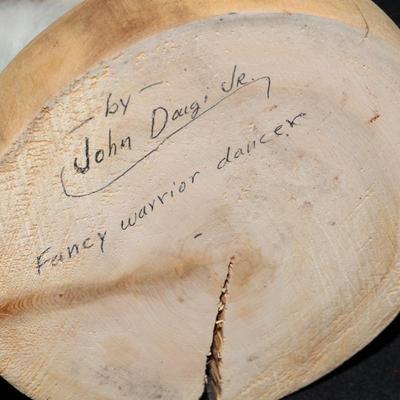 - by -
John Daug, Jr.
Fancy warrior dancer
-